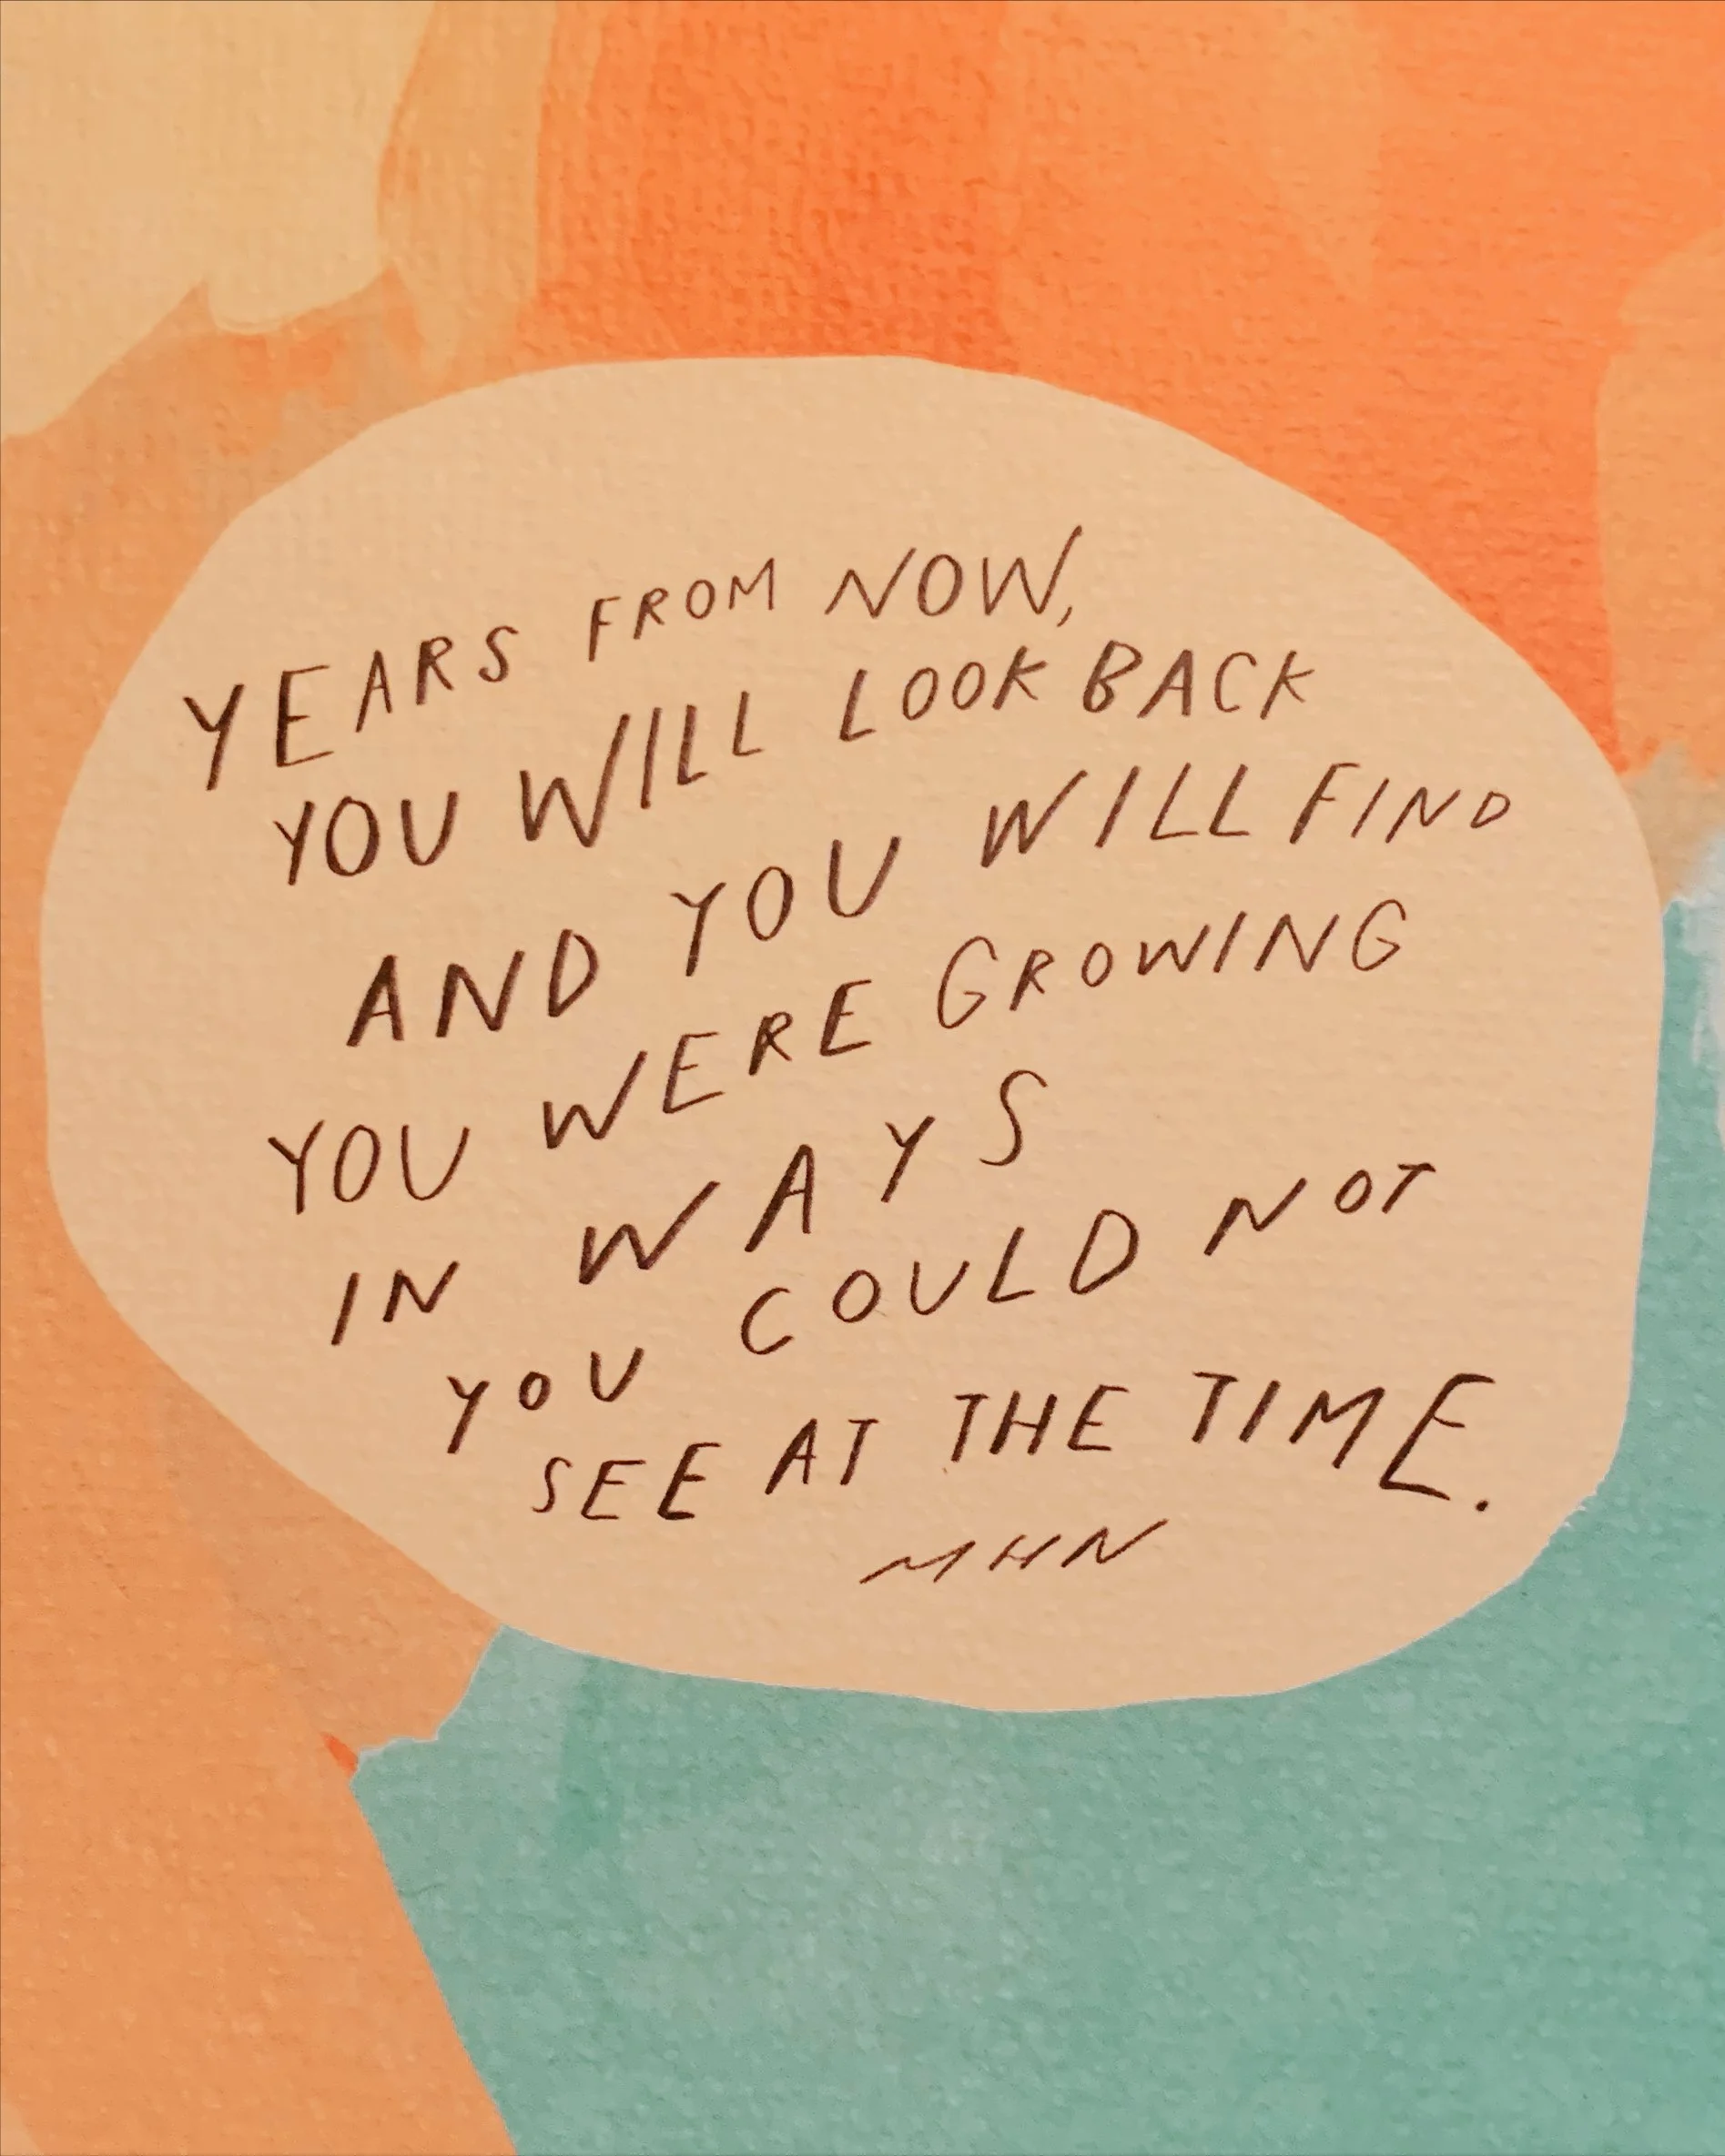 YEARS FROM NOW,
YOU WILL LOOK BACK
AND YOU WILL FIND
YOU WERE GROWING
IN WAYS
YOU COULD NOT
SEE AT THE TIME.
MHN